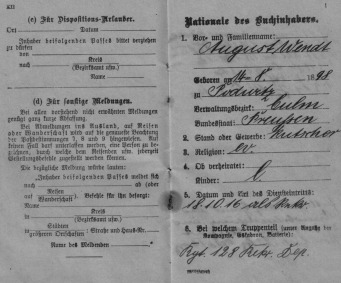 XII
(c) Für Dispositions-Urlauber.
Ort Datum
Inhaber beifolgenden Passes bittet verziehen
zu dürfen
nach
Kreis
(Bezirksamt usw.)
Name
(d) Für sonstige Meldungen.
Bei allen vorstehend nicht erwähnten Meldungen
genügt ganz kurze Abfassung.
Bei Abmeldungen ins Ausland, auf Reisen
oder Wanderschaft wird auf die genaueste Beachtung
der Paßbestimmungen 7, 8 und 9 hingewiesen. Auf
jeden Fall darf unterlassen werden, eine Person zu
bezeichnen, durch welche dem Reisenden usw. jederzeit
Gestellungsbefehle zugestellt werden können.
Die bezügliche Meldung würde lauten:
„Inhaber beifolgenden Passes meldet sich
nach ab (oder auf
Reisen
Wanderschaft). Befehle für ihn besorgt:
Name
Kreis
(Bezirksamt usw.)
in größeren Ortschaften: Straße und Haus-Nr.
Name des Meldenden
1
Nationale des Buchinhabers.
1. Vor- und Familienname:
August Wendt
Geboren am 14. 8. 1898
zu Podwitz
Verwaltungsbezirk: Culm
Bundesstaat: Preußen
2. Stand oder Gewerbe: Kutscher
3. Religion: ev
4. Ob verheiratet:
Kinder:
5. Datum und Art des Diensteintritts:
18.10.16 als Rekr
6. Bei welchem Truppenteil (unter Angabe der
Kompagnie, Eskadron, Batterie):
128 Rekr. Dep.